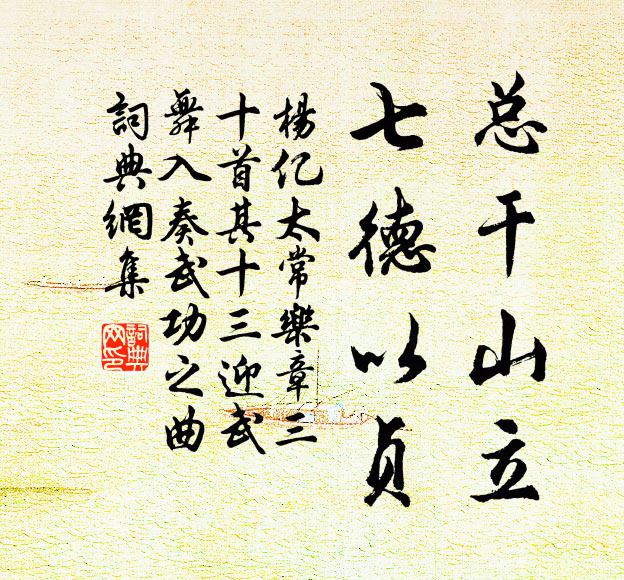 总干山立
七德以贞
楊亿太常樂章三
十首其十三迎武
舞入奏武功之曲
詞典網集
詞典
网印